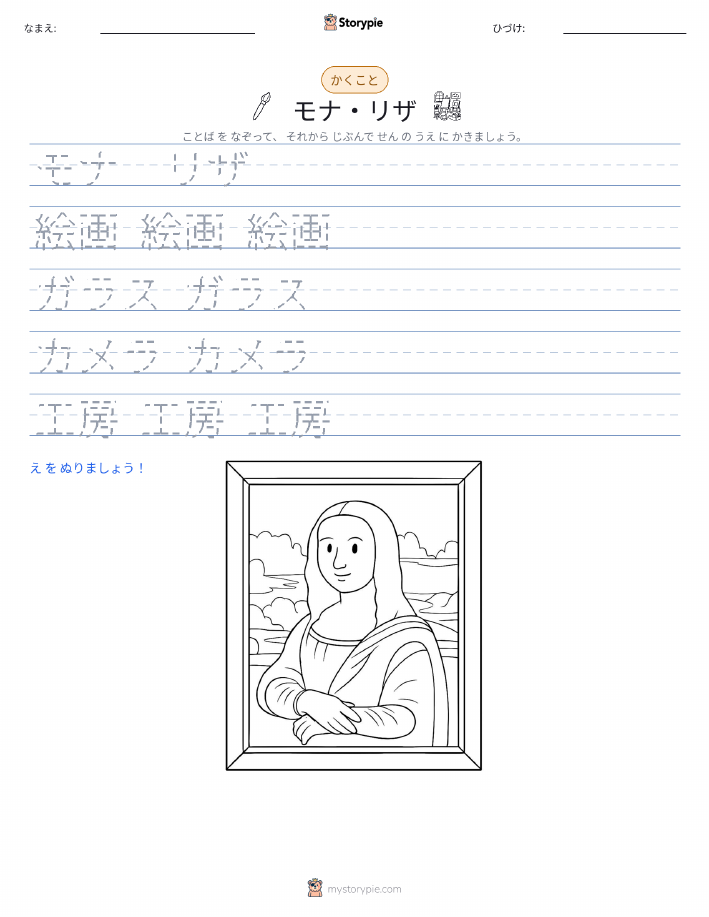 なまえ:
Storypie
ひづけ:
かくこと
モナ・リザ
ことば を なぞって、 それから じぶんで せん の うえ に かきましょう。
モナ リザ
絵画 絵画 絵画
ガラス ガラス
カメラ カメラ
工房 工房 工房
え を ぬりましょう！
mystorypie.com